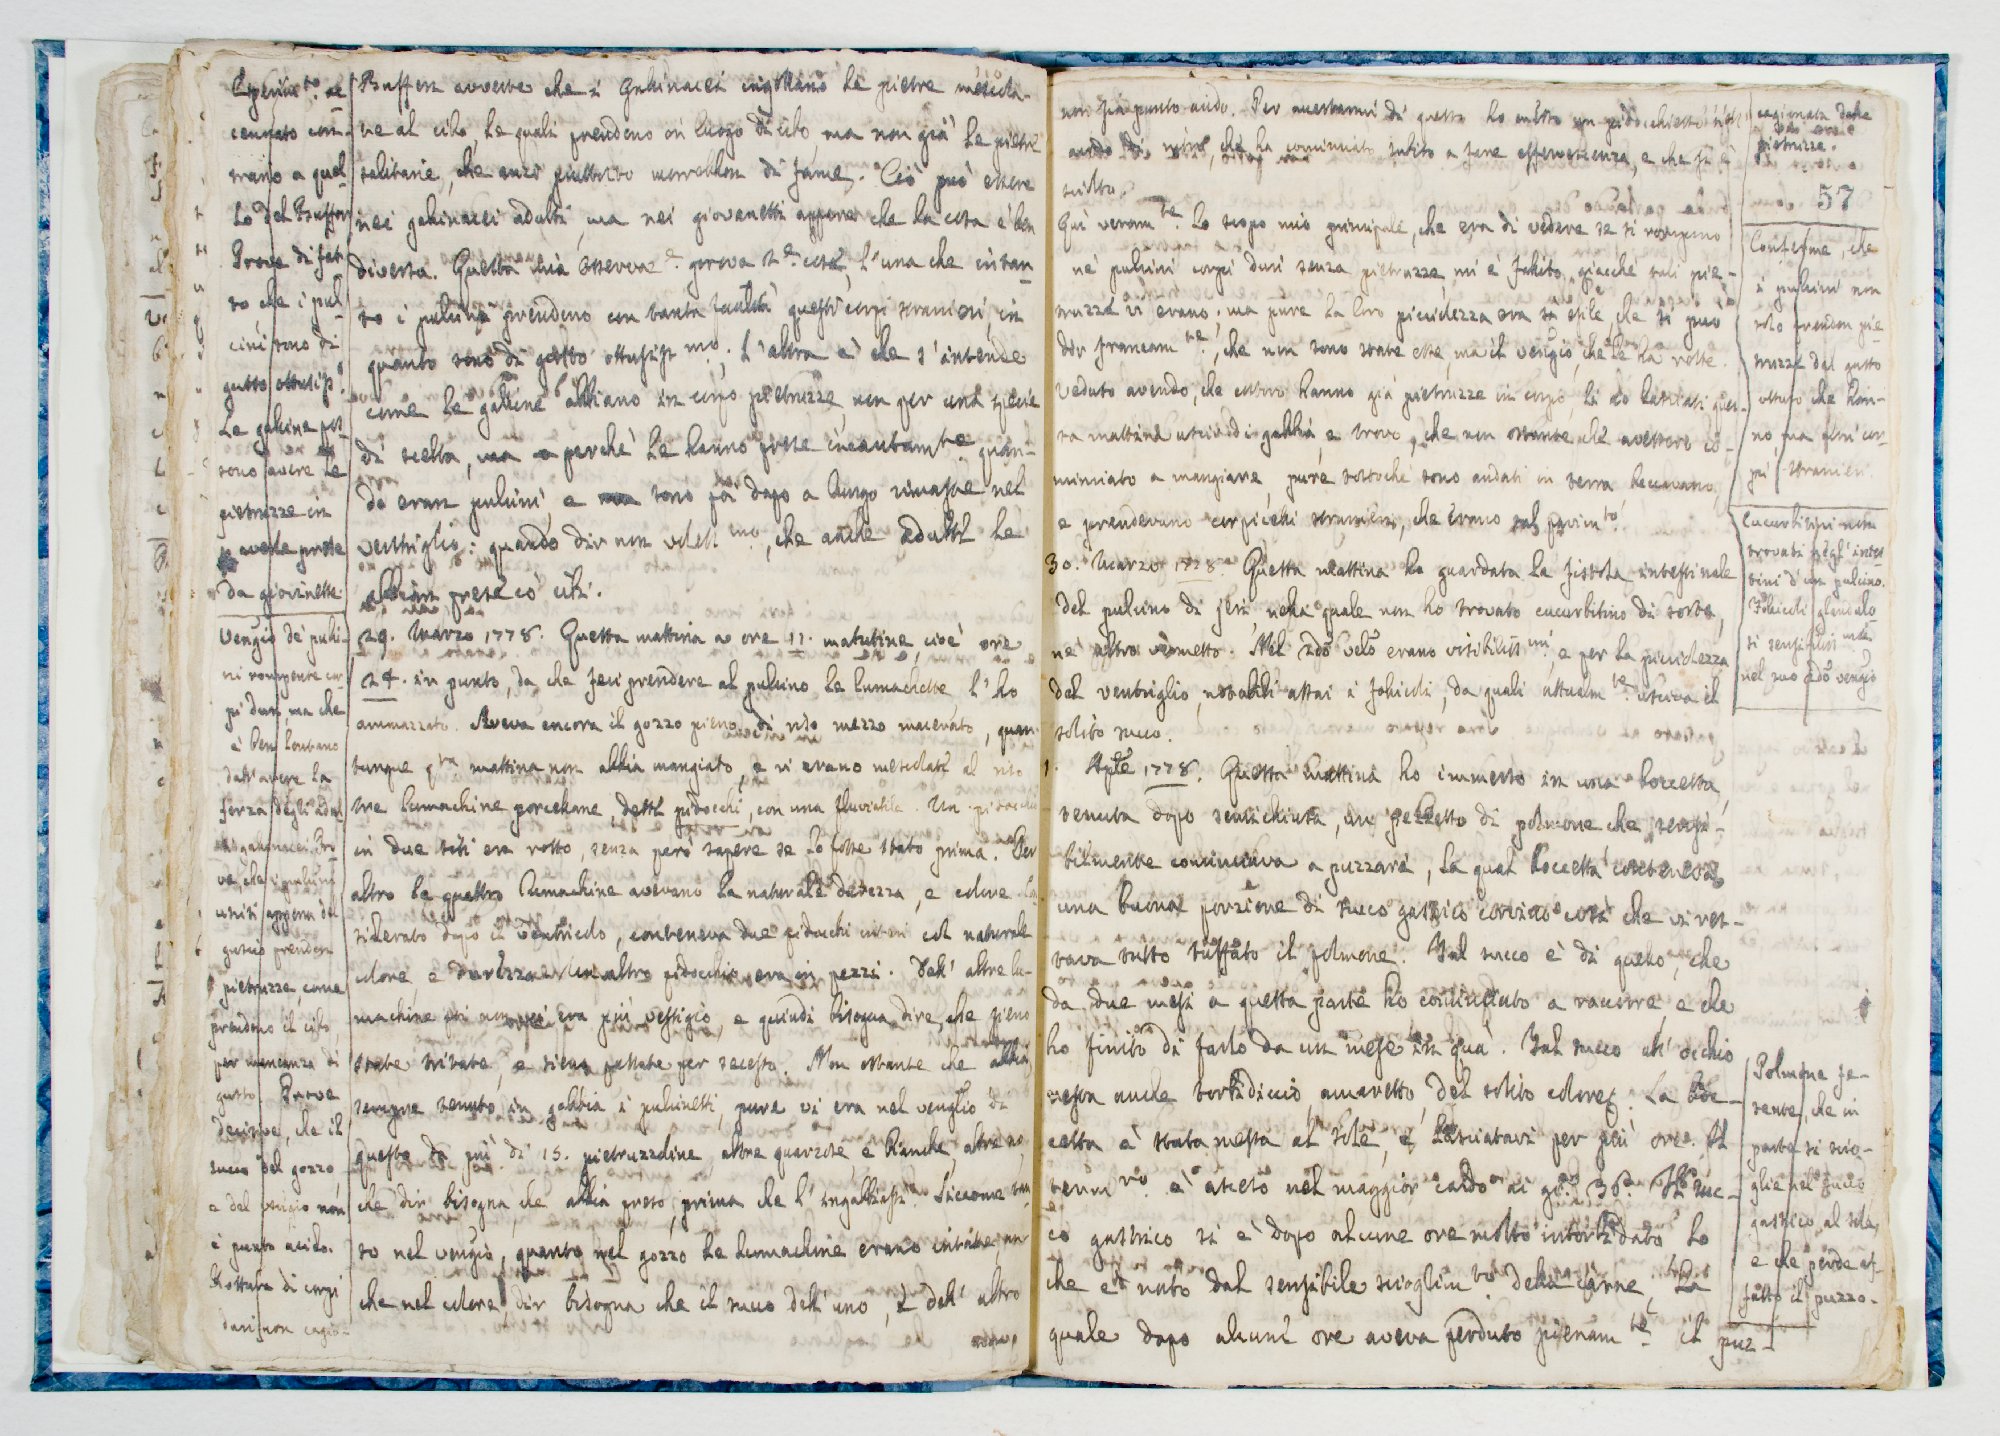 Buffon avverte che i Gallinacei ingollano le pietre mescola-
te al cibo, le quali prendono in luogo di cibo, ma non già le pietre
solitarie, che anzi piuttosto morrebbon di fame. Ciò può essere
nei gallinacei adulti, ma nei giovanetti appare che la cosa è ben
diversa. Questa mia prova 2 cose, l'una che intan-
to i pulcini prendono con tanta facilità questi corpi stranieri, in
quanto sono di gusto ottusiss.mo; l'altra è che s'intende
come le galline abbiano in corpo pietruzze non per una specie
di scelta, ma perchè le hanno prese incautam.te quan-
do eran pulcini, e sono poi dopo a lungo rimaste nel
ventriglio: quando dir non volessimo, che anche adulti le
abbian prese co' cibi.
29. Marzo 1778. Questa mattina a ore 11. matutine, cioè ore
24. in punto, da che feci prendere al pulcino le lumachette l'ho
ammazzato. Aveva ancora il gozzo pieno di riso mezzo macerato, quan-
tunque q.ta mattina non abbia mangiato, e vi erano mescolati al riso
tre lumachine porcellane, detti pidocchi, con una fluviatile. Un pidocchio
in due siti era rotto, senza però sapere se lo fosse stato prima. Per
altro le quattro lumachine avevano la naturale durezza, e colore
dopo il ventricolo, conteneva due pidocchi interi col naturale
colore e durezza. Un altro pidocchio era in pezzi. Dell' altre lu-
machine poi non vi era più vestigio, e quindi bisogna dire, che sieno
state tritate, e sieno passate per secesso. Non ostante che abbia
sempre tenuto in gabbia i pulcinetti, pure vi era nel ventriglio di
questo da più di 15. pietruzzoline, altre quarzose, e bianche, altre no,
che dir bisogna che abbia preso prima che l'ingabbiassi. Siccome tan-
to nel , quanto nel gozzo le lumachine erano intatte an-
che nel colore, dir bisogna che il succo dell' uno, e dell' altro
non
Esperim.to ac-
cennato con-
trario a quel-
lo del Buffon
Prove di fat-
to che i pul-
cini sono di
gusto ottusiss.o
Le galline pos-
sono avere le
pietruzze in
averle prese
da giovinette
de' pulci-
ni rompente cor-
pi duri, ma che
è ben lontano
dall'avere la
forza degli adul-
ti gallinacei. Pro-
ve che i pulcini
usciti appena dal
guscio prendon
pietruzze, come
prendono il cibo,
per mancanza di
gusto. Prove
decisive, che il
succo del gozzo,
e del non
è punto acido.
Rottura di corpi
duri non cagio-
non sia punto acido. Per accertarmi di questo ho messo un pidocchietto nell'
acido di nitro, che ha cominciato subito a fare effervescenza, e che si è
sciolto.
Qui veram.te lo scopo mio principale, che era di vedere se si rompano
ne' pulcini corpi duri senza pietruzze, mi è fallito, giacchè tali pie-
truzze vi erano; ma pure la loro picciolezza era sì esile, che si può
dir francam.te, che non sono state esse, ma il , che le ha rotte.
Veduto avendo, che costoro hanno già pietruzze in corpo, li ho lasciati ques-
ta mattina uscir di gabbia, e trovo, che non ostante che avessero co-
minciato a mangiare, pure tostochè sono andati in terra beccavano
e prendevano corpicelli stranieri, che erano sul pavim.to.
30. Marzo 1778. Questa mattina ho guardata la fistola intestinale
del pulcino di jeri, nella quale non ho trovato cucurbitino di sorta,
nè altro vermetto. Nel erano visibiliss.mi, e per la picciolezza
del ventriglio, notabili assai i follicoli, da quali attualm.te usciva il
solito succo.
1. Aple 1778. Questa mattina ho immerso in una boccetta,
tenuta dopo semichiusa, un pezzetto di polmone che sensi-
bilmente cominciava a puzzare, la qual boccetta conteneva
una buona porzione di succo gastrico corvino così che vi res-
tava tutto tuffato il polmone. Tal succo è di quello, che
da due mesi a questa parte ho continuato a raccorre e che
ho finito di farlo da un mese in qua. Tal succo all' occhio
resta anche torbidiccio, amaretto, del solito colore. La boc-
cetta è stata messa al sole, e lasciatavi per più ore. Il
term.ro è asceso nel maggior caldo ai gr. 36. Il suc-
co gastrico si è dopo alcune ore molto intorbidato lo
che è nato dal sensibile scioglim.to della carne, la
quale dopo alcune ore aveva perduto pienam.te il puz-
cagionata dalle
pietruzze.
57
Conferme, che
i pulcini non
solo prendon pie-
truzze dal gusto
ottuso che han-
no, ma altri cor-
pi stranieri.
Cucurbitini non
trovati negl'intes-
tini d'un pulcino.
Follicoli glandulo-
si sensibiliss.mi
nel suo
Polmone fe-
tente, che in
parte si scio-
glie nel succo
gastrico al sole,
e che perde af-
fatto il puzzo.